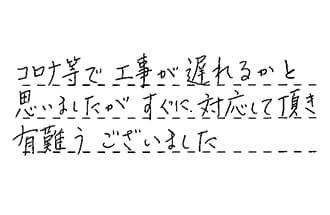 コロナ等で工事が遅れるかと
思いましたがすぐに対応して頂き
有難うございました